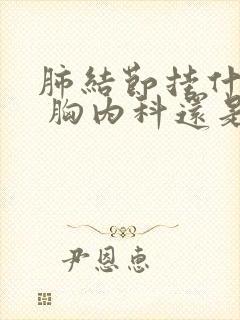 肺結節掛什
胸內科還是
尹恩惠